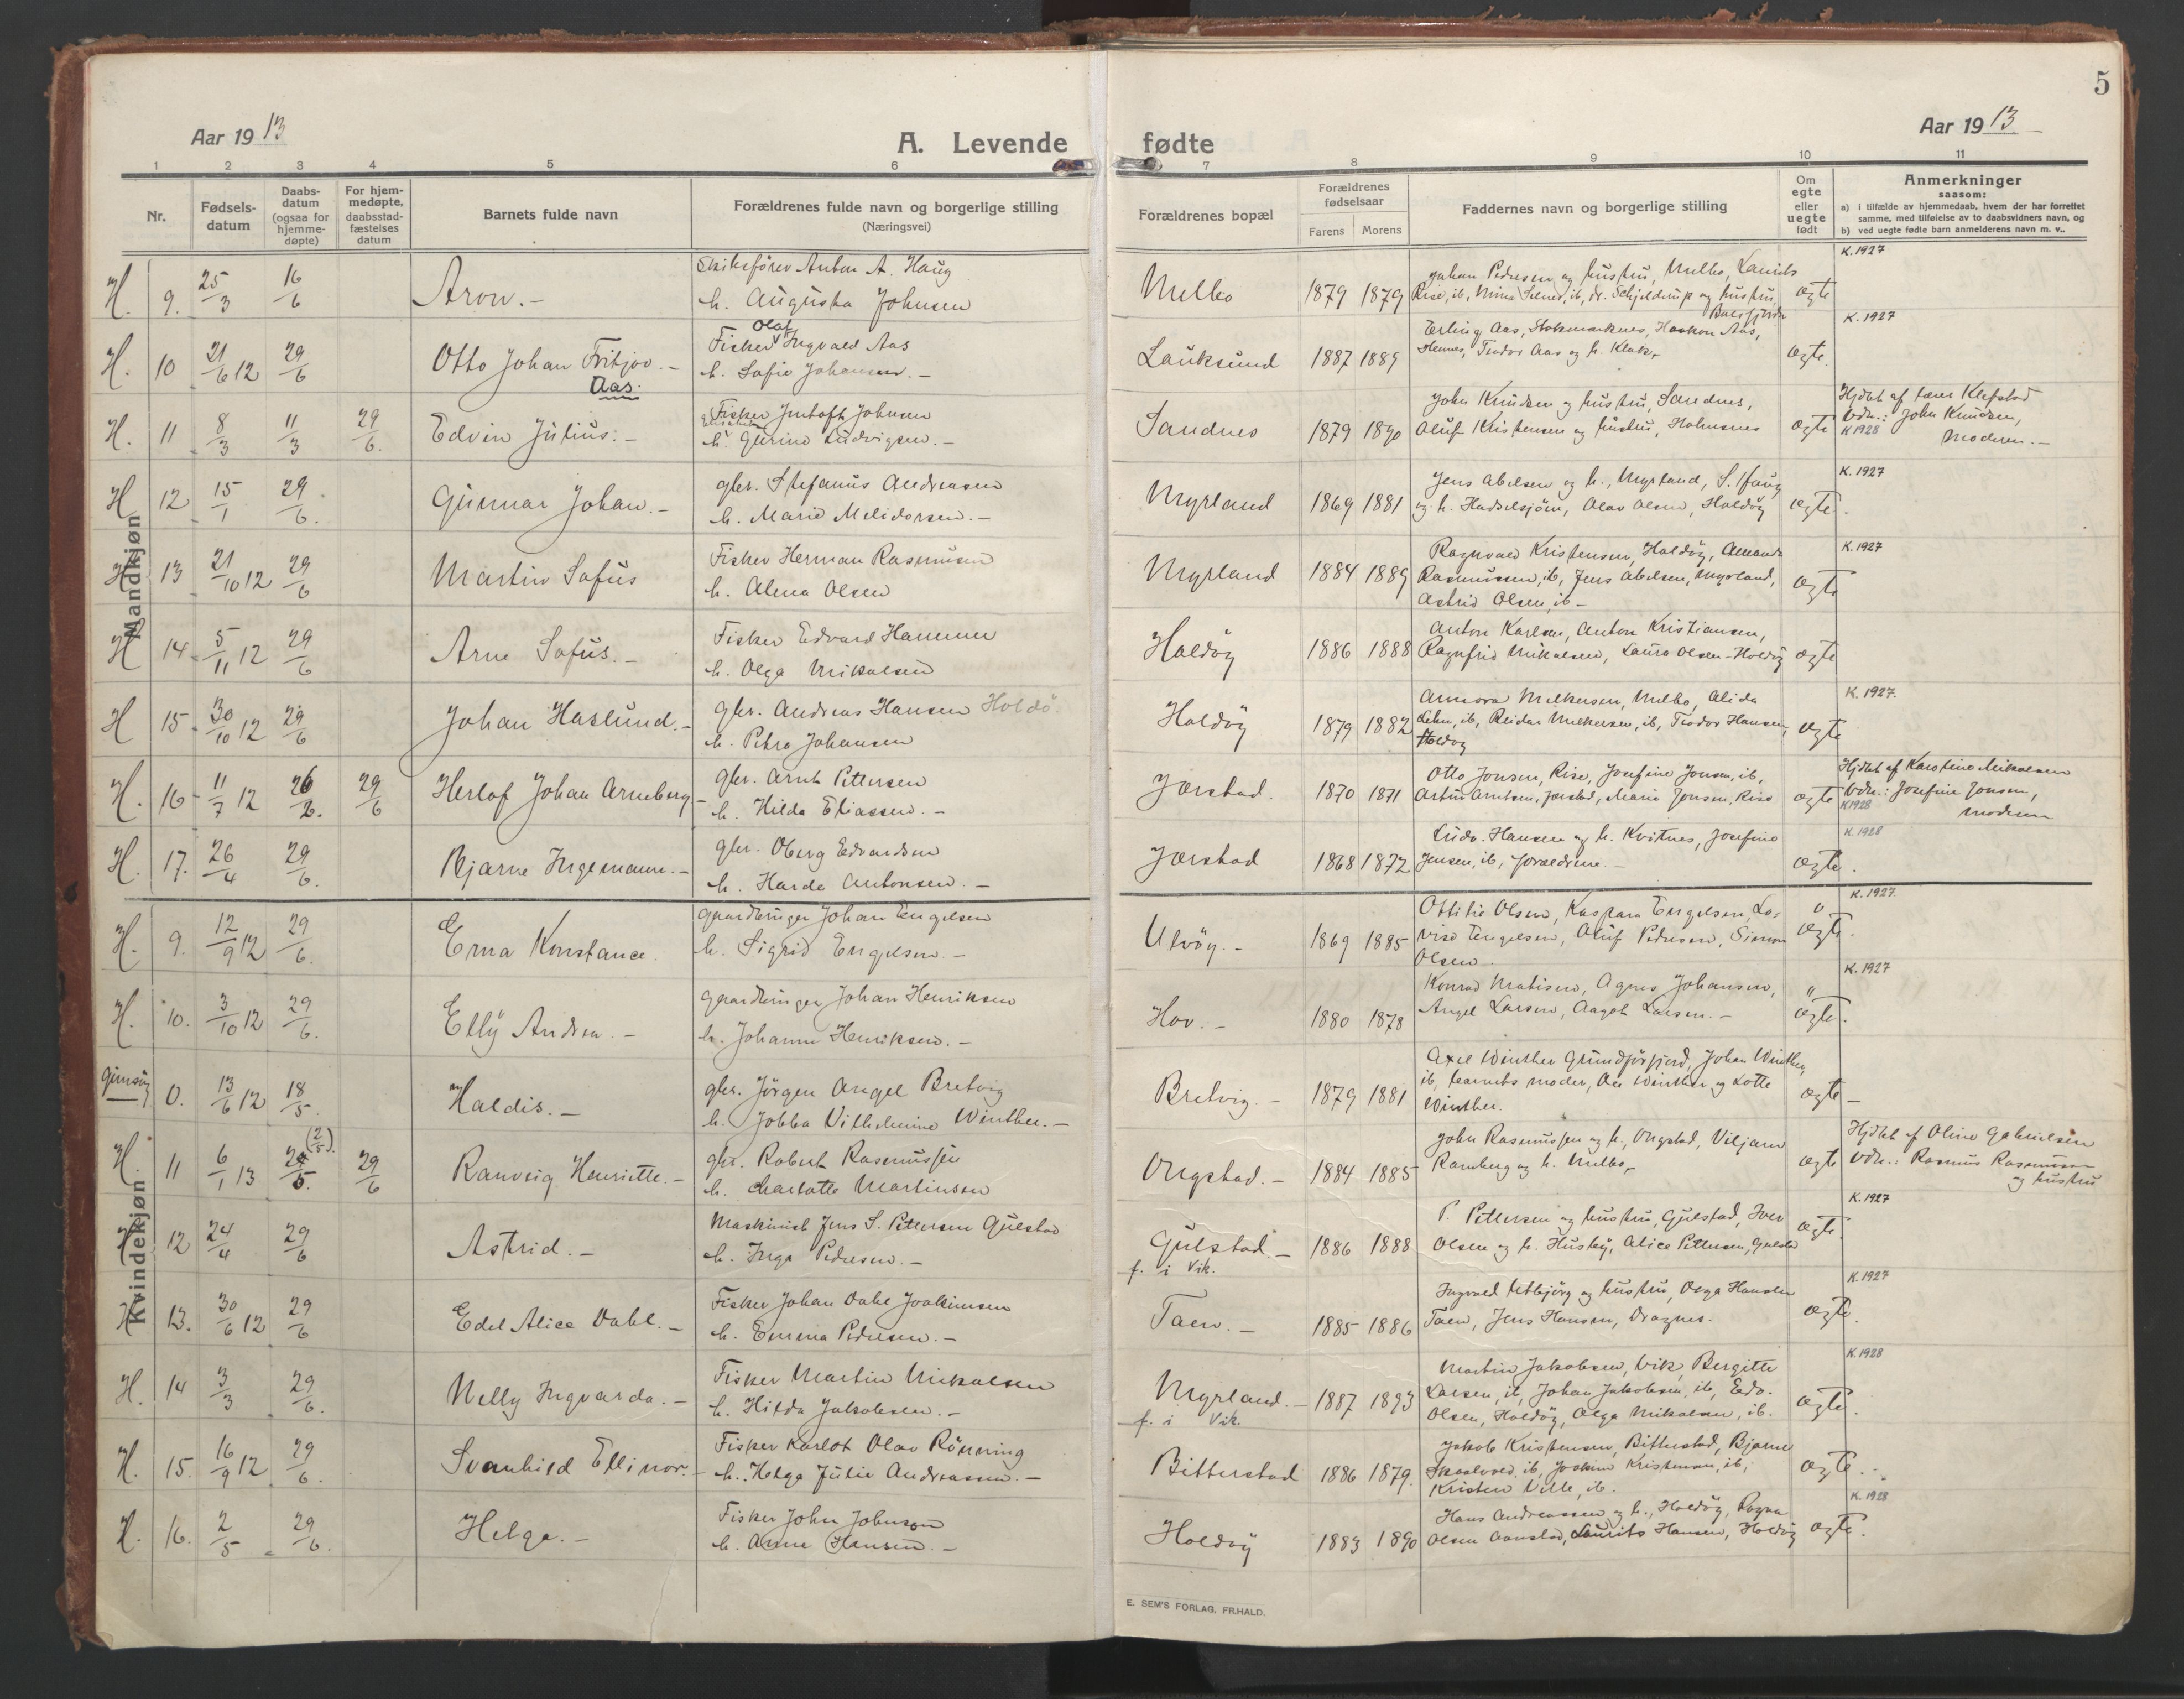 5
Aar 1913
A. Levende
fødte
Aar 1913
1 2 3 4 5 6 7 8 9 10 11
Nr.
Fødsels-
datum
Daabs-
datum
(ogsaa for
hjemme-
døpte)
For hjem-
medøpte,
daabsstad-
fæstelses
datum
Barnets fulde navn
Forældrenes fulde navn og borgerlige stilling
(Næringsvei)
Forældrenes bopæl
Forældrenes
fødselsaar
Farens Morens
Faddernes navn og borgerlige stilling
Om
egte
eller
uegte
født
Anmerkninger
saasom:
a) i tilfælde av hjemmedaab, hvem der har forrettet
samme, med tilføielse av to daabsvidners navn, og
b) ved uegte fødte barn anmelderens navn m. v..
Mandkjøn
H. 9. 25/3 16/6 Aron.-
Anton A. Haug
h. Augusta Johnsen
Melbo 1879 1879
Johan Pedersen og hustru, Melbo, Laurits
Rise, ib, dr. Schjelderup og hustru,
ægte
K. 1927
H. 10 21/6 12 29/6 Otto Johan Fritjov.-
Aas.
Olaf
Fisker Ingvald Aas
h. Sofie Johansen.-
Lauksund 1887 1889
Erling Aas, Stokmarknes, Haakon Aas,
Hennes, Teodor Aas og h.
ægte.
K. 1927
H. 11 8/3 11/3 29/6. Edvin Julius.-
Fisker Jentoft Johnsen
h. Gurine Ludvigsen.-
Sandnes 1879 1890
John Knudsen og hustru, Sandnes,
Oluf Kristensen og hustru, Holmsnes
ægte
Hjdbt af lærer Klefstad
Vdn.: John Knudsen,
K1928 Moderen.-
H 12 15/1 29/6. Gunnar Johan.-
gbr. Stefanus Andreasen
h. Marie Melidorsen.-
Myrland 1869 1881
Jens Abelsen og h., Myrland, S. Haug
og h. Hadselsjöen, Olav Olsen, Holdöy
ægte.
K. 1927
H 13 21/10 12 29/6 Martin Sofus
Fisker Herman Rasmussen
h. Alena Olsen
Myrland 1884 1889
Ragnvald Kristensen, Holdöy, Amanda
Rasmussen, ib, Jens Abelsen, Myrland,
Astrid Olsen, ib-
ægte
K. 1927
H 14 5/11 12 29/6 Arne Sofus.-
Fisker Edvard Hammer
h. Olga Mikalsen
Holdöy 1886 1888
Anton Karlsen, Anton Kristiansen,
Ragnfrid Mikalsen, Laura Olsen-Holdöy
ægte
H 15 30/10 12 29/6 Johan Haslund.-
gbr. Andreas Hansen Holdö.
h. Petra Johansen
Holdöy 1879 1882
Annora Melkersen, Melbo, Alida
Lehn, ib, Reidar Melkersen, ib, Teodor Hansen,
Holdöy
ægte
K. 1927.
H. 16 11/7 12 26/2. 29/6 Herlof Johan Arneberg-
gbr. Arnt Pettersen
h. Hilda Eliassen.-
Jørstad. 1870 1871
Otto Jonsen, Rise, Josefine Jonsen, ib,
Artur Arntsen, Jørstad, Marie Jonsen, Rise
ægte
Hjdbt af Karotine Mikalsen
Vdn.: Josefine Jonsen,
K1928 moderen
H. 17. 26/4 29/6. Bjarne Ingemann.-
gbr. Oberg Edvardsen
h. Harda Antonsen.-
Jørstad 1868 1872
Ludv. Hansen og h. Kvitnes, Josefine
Jensen, ib, forældrene.-
ægte.
K. 1928
Kvindekjøn
H. 9. 12/9 12 29/6. Erna Konstance.
gaardbruger Johan Engelsen
h. Sigrid Engelsen.-
Ulvöy.- 1869 1885
Ottilie Olsen, Kaspara Engelsen, Lo-
vise Engelsen, Oluf Pedersen, Simon
Olsen.
ægte.
K. 1927
H. 10. 3/10 12 29/6. Elly Andrea.-
gaardbruger Johan Henriksen
h. Johanne Henriksen.-
Hov.- 1880 1878
Konrad Matisen, Agnes Johansen,
Angel Larsen, Aagot Larsen.-
ægte.
K. 1927
Gimsöy 0. 13/6 12 18/5. Haldis.-
gbr. Jörgen Angel Bretvig
h. Jobba Vilhelmine Winther.-
Bretvig.- 1879 1881
Axel Winther Grundförfjord, Johan Winther,
ib, barnets moder, Winther og Lotte
Winther.
ægte-
H. 11 6/1 13 (2/5). 29/6 Ranveig Henriette.-
gbr. Robert Rasmussen
h. Charlotte Martinsen
Ongstad.- 1884 1885
John Rasmussen og h., Ongstad, Viljam
Ramberg og h. Melbo,
ægte
Hjdbt af Oline Gabrielsen
Vdn.: Rasmus Rasmussen
og hustru
H 12 24/4 29/6 Astrid.-
Maskinist Jens S. Pettersen Gulstad
h. Inga Pedersen.-
Gulstad.- 1886 1888
f. i Vik.
P. Pettersen og hustru, Gulstad, Iver
Olsen og h. Husby, Alice Pettersen, Gulstad
ægte.
K. 1927
H 13. 30/6 12 29/6 Edel Alice Dahl.-
Fisker Johan Dahl Joakimsen
h. Emma Pedersen.-
Taen.- 1885 1886
Ingvald og hustru, Olga Hansen
Taen, Jens Hansen, Dragnes.
ægte.
K. 1927
H. 14 3/3 29/6. Nelly Ingvarda.-
Fisker Martin Mikalsen
h. Hilda Jakobsen.-
Myrland.- 1887 1893
f. i Vik.
Martin Jakobsen, Vik, Bergitte
Larsen, ib, Johan Jakobsen, ib, Edv.
Olsen, Holdöy, Olga Mikalsen, ib.
ægte.
K. 1928
H. 15. 16/9 12 29/6. Svanhild Ellinor.-
Fisker Karlot Olav Rönning
h. Helga Julie Andreassen.-
Bitterstad 1886 1879.
Jakob Kristensen, Bitterstad, Bjarne
Skaalvold, ib, Joakim Kristensen, ib,
Kristen Ville, ib.
ægte.-
H. 16. 2/5 29/6. Helga.-
Fisker John Johnson
h. Anna Hansen.-
Holdöy 1883 1890
Hans Andreassen og h., Holdöy, Ragna
Olsen Aanstad, Laurits Hansen, Holdöy
ægte.
K. 1928
E. SEM'S FORLAG, FR.HALD.